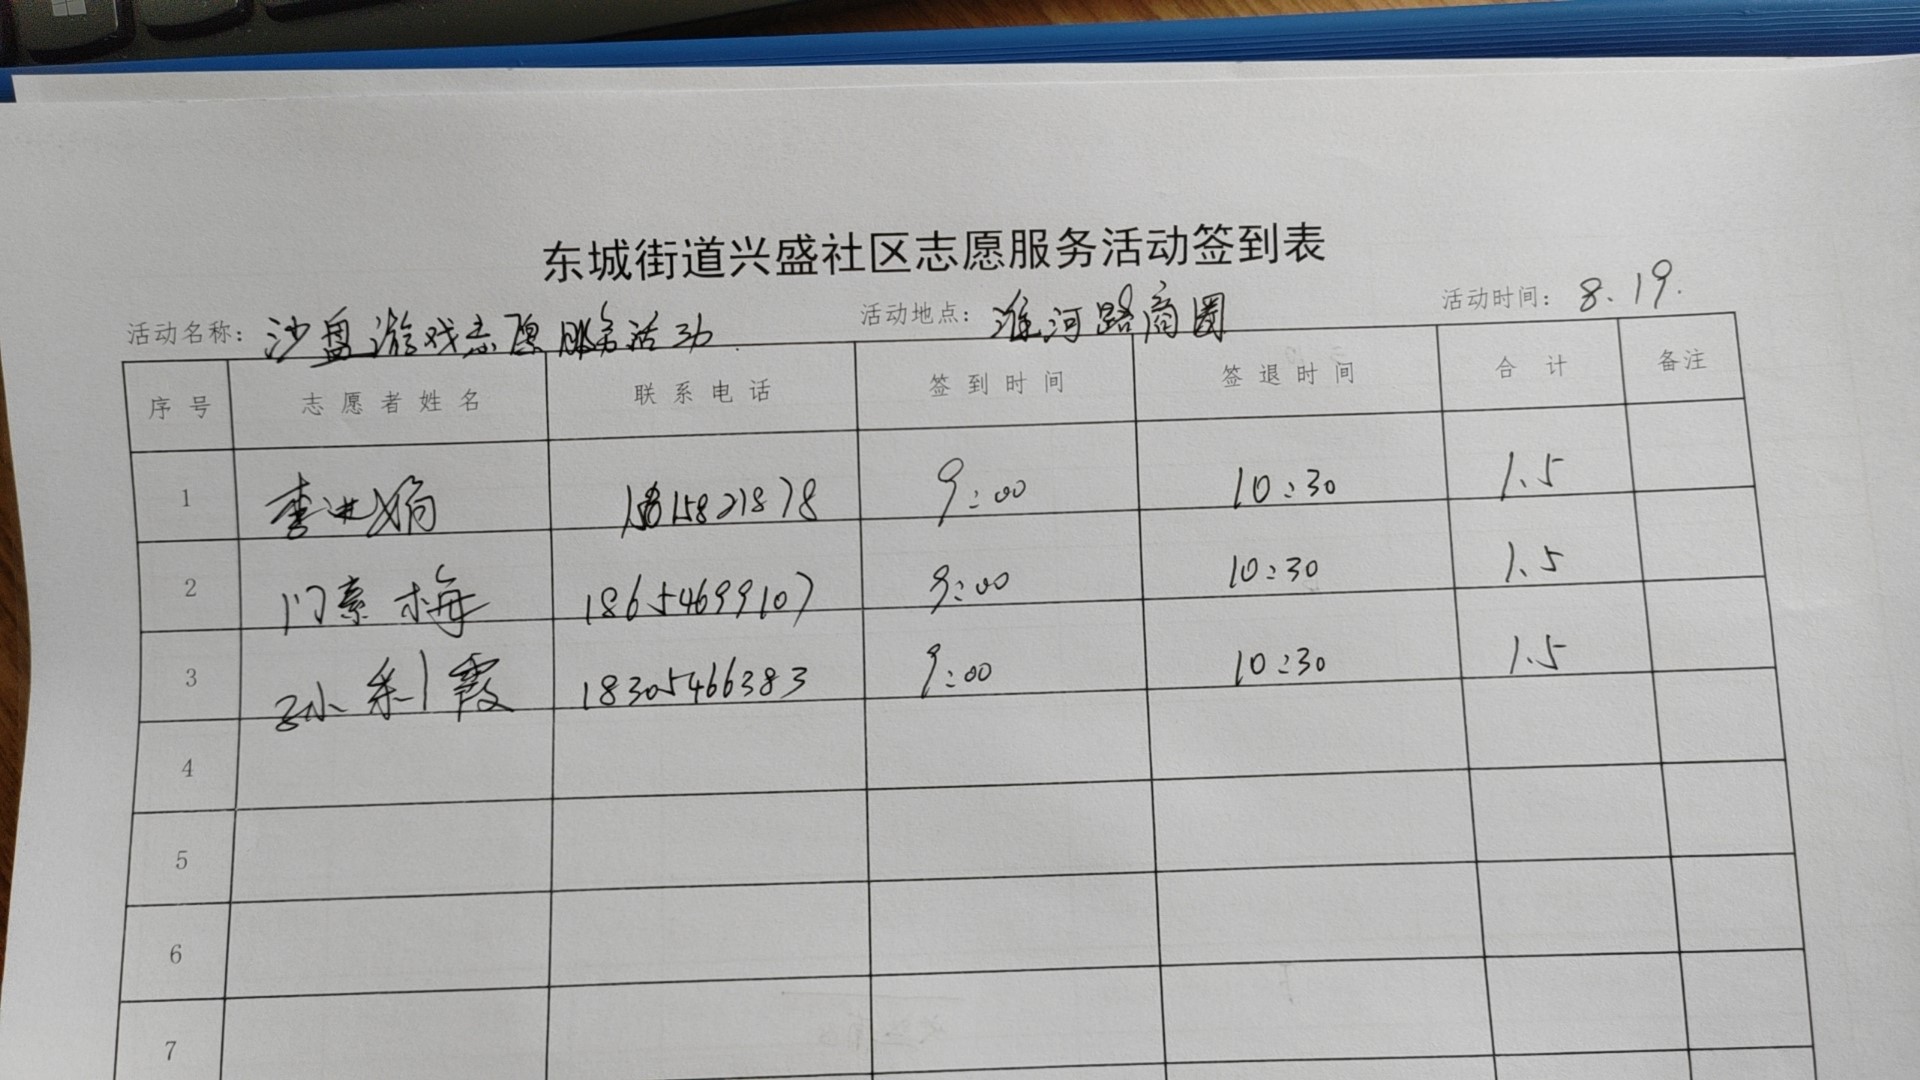 东城街道兴盛社区志愿服务活动签到表
活动名称： 沙盘游戏志愿服务活动 活动地点： 淮河路商圈 活动时间： 8.19.
序号 志愿者姓名 联系电话 签到时间 签退时间 合计 备注
1 李进娟 9:00 10:30 1.5
2 门素梅 18654699107 9:00 10:30 1.5
3 孙利霞 18305466383 9:00 10:30 1.5
4
5
6
7